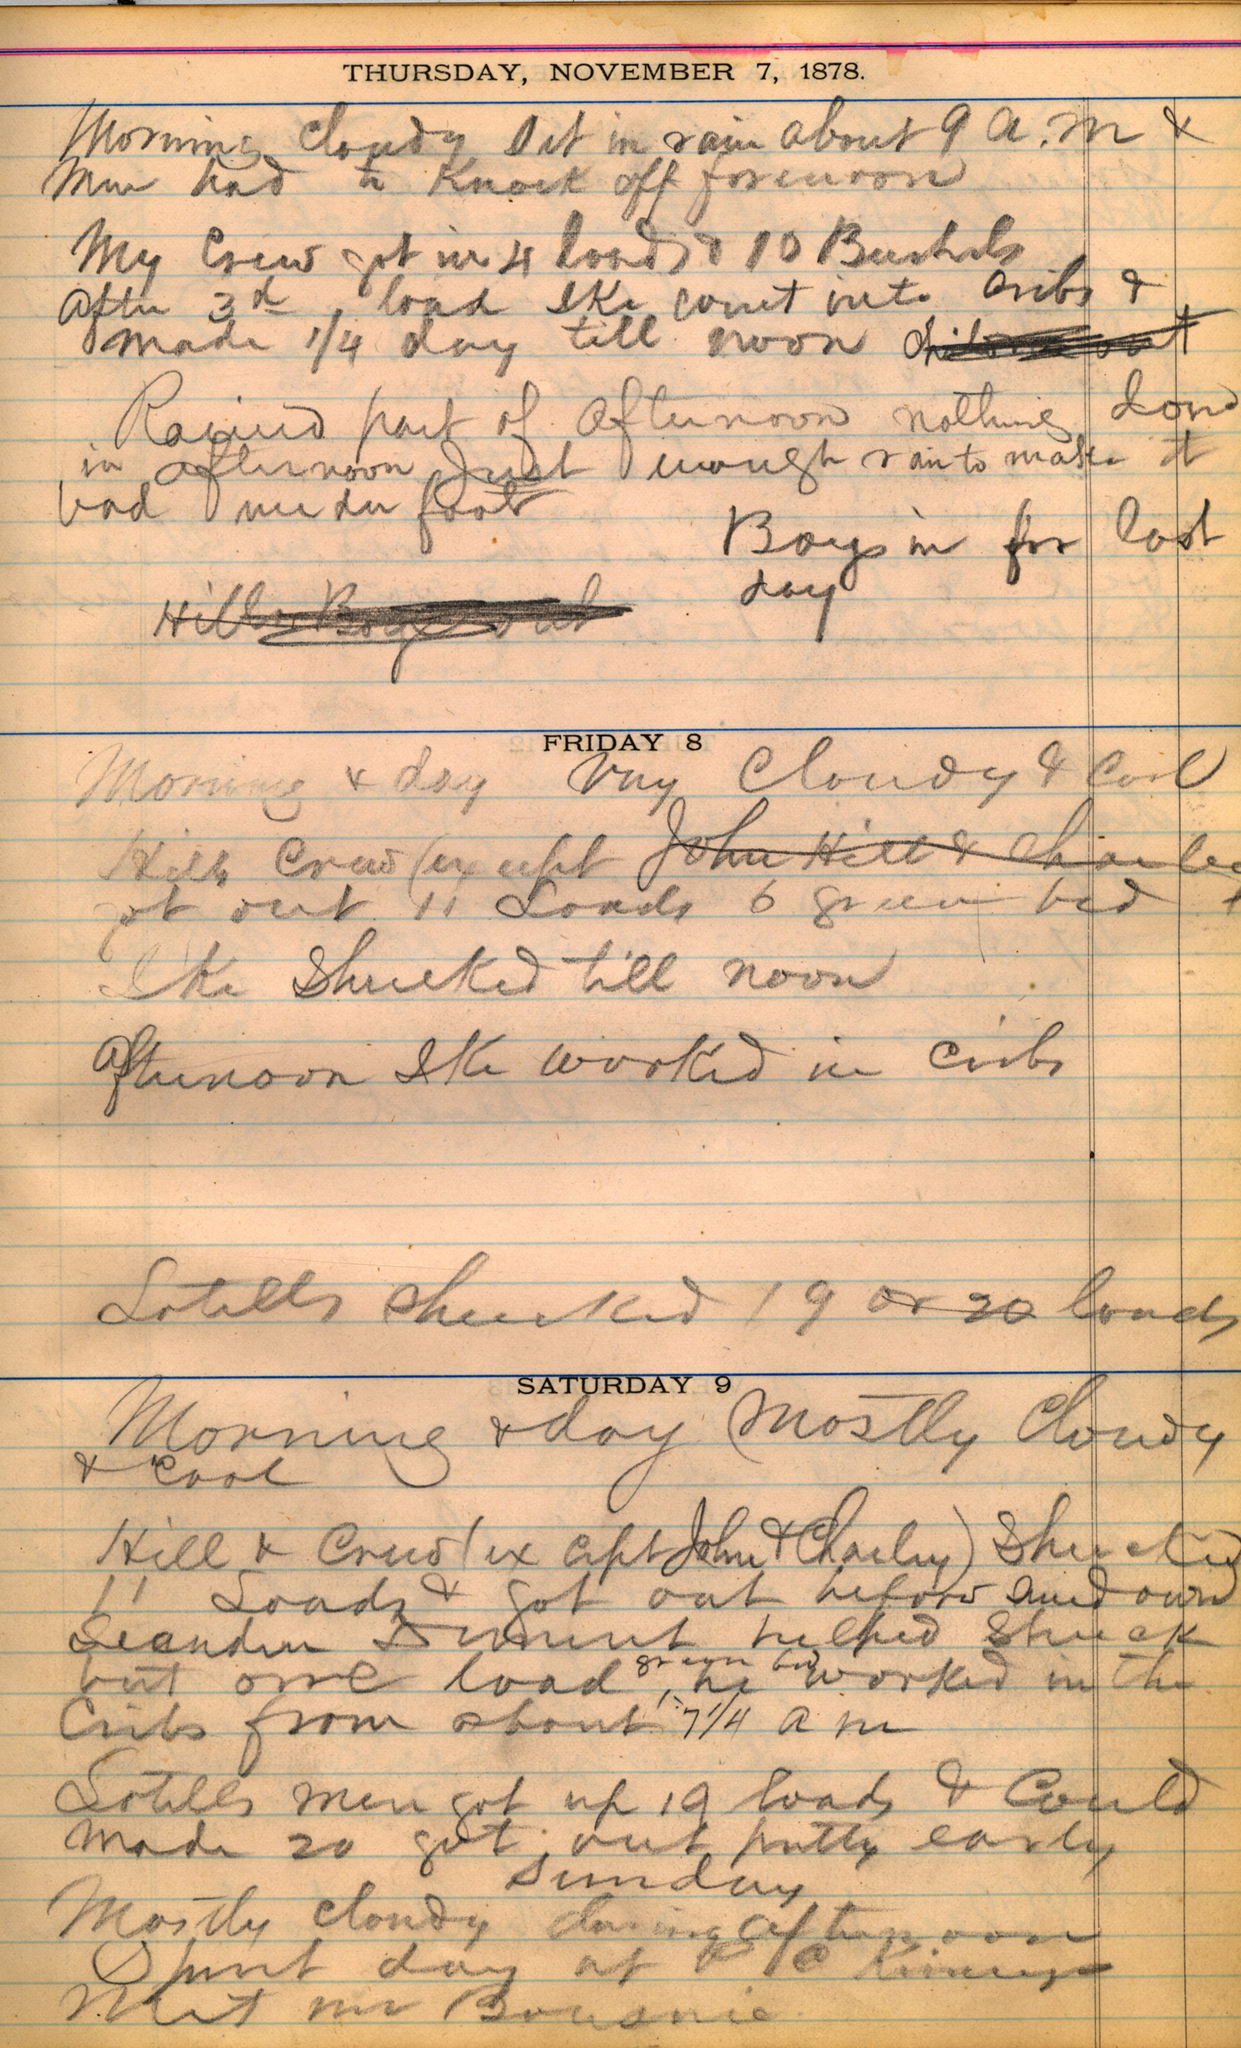 THURSDAY, NOVEMBER 7, 1878.
Morning Cloudy Set in rain about 9 a.m &
Men had to Knock off forenoon
My Crew got in 4 loads & 10 Bushels
After 3d load Ike went into Cribs &
made 1/4 day till noon
Rained part of afternoon nothing done
in afternoon Just enough rain to make it
bad under foot
Boys in for last
day
Hills Boys out
FRIDAY 8
Morning & day Very Cloudy & Cool
Hills Crew (except John Hill & Charley
got out 11 Loads 6 green bed
Ike Shucked till noon
Afternoon Ike worked in Cribs
Lotills Shucked 19 or 20 loads
SATURDAY 9
Morning & day Mostly Cloudy
& Cool
Hill & Crew (except John & Charley) Shucked
11 Loads & got out before Sundown
Leander helped Shuck
but one load green bed he worked in the
Cribs from about 7 1/4 a m
Lotills men got up 19 loads & Could
made 20 got out pretty early
Sunday
Mostly Cloudy during afternoon
Spent day at
Met Mr